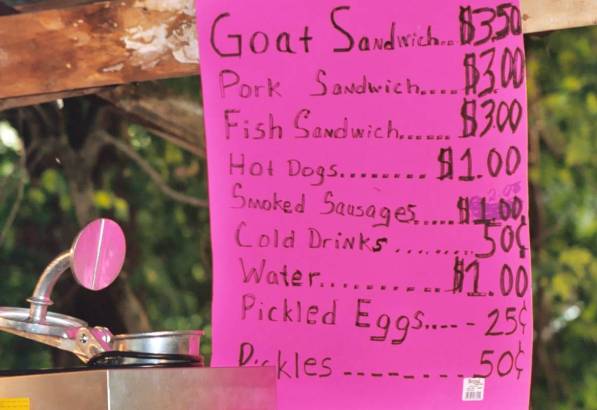 Goat Sandwich... $3.50
Pork Sandwich.... $3.00
Fish Sandwich...... $3.00
Hot Dogs........ $1.00
Smoked Sausages..... $1.00
Cold Drinks ........ 50¢
Water........... $1.00
Pickled Eggs....-- 25¢
Pickles -------- 50¢